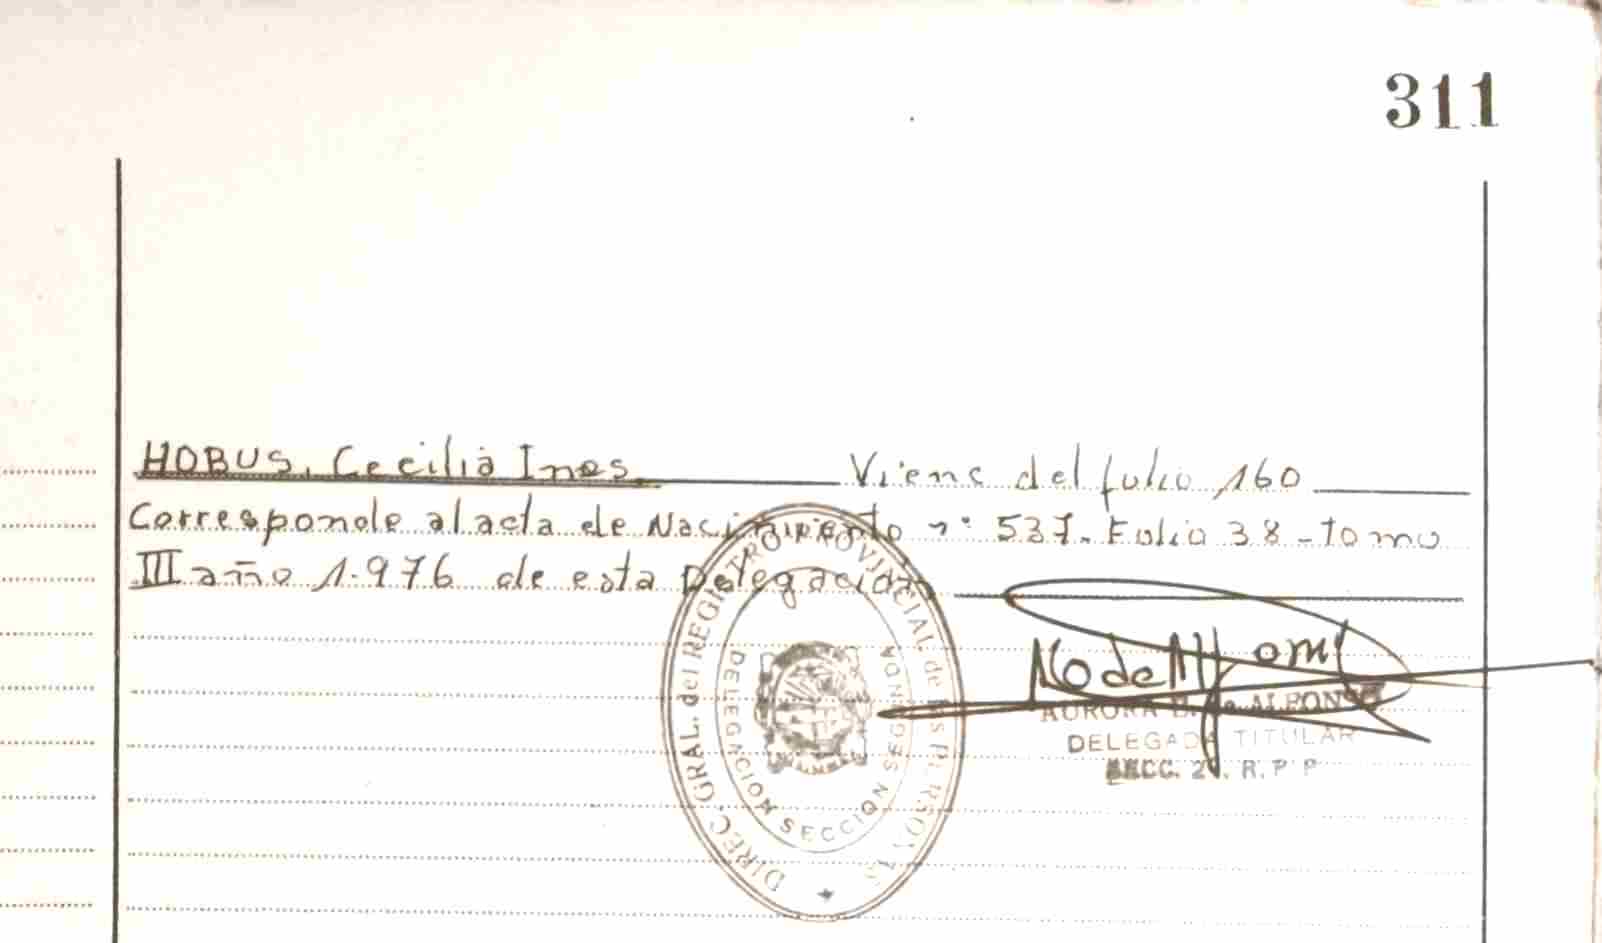 311
HOBUS, Cecilia Ines Viene del folio 160
Corresponde al acta de Nacimiento nº 537. Folio 38 - tomo
III año 1.976 de esta Delegación
DIREC. GRAL. del REGISTRO PROVINCIAL de las PERSONAS
DELEGACION SECCION SEGUNDA
AURORA B. de ALFONSO
DELEGADA TITULAR
SECC. 2ª. R. P. P